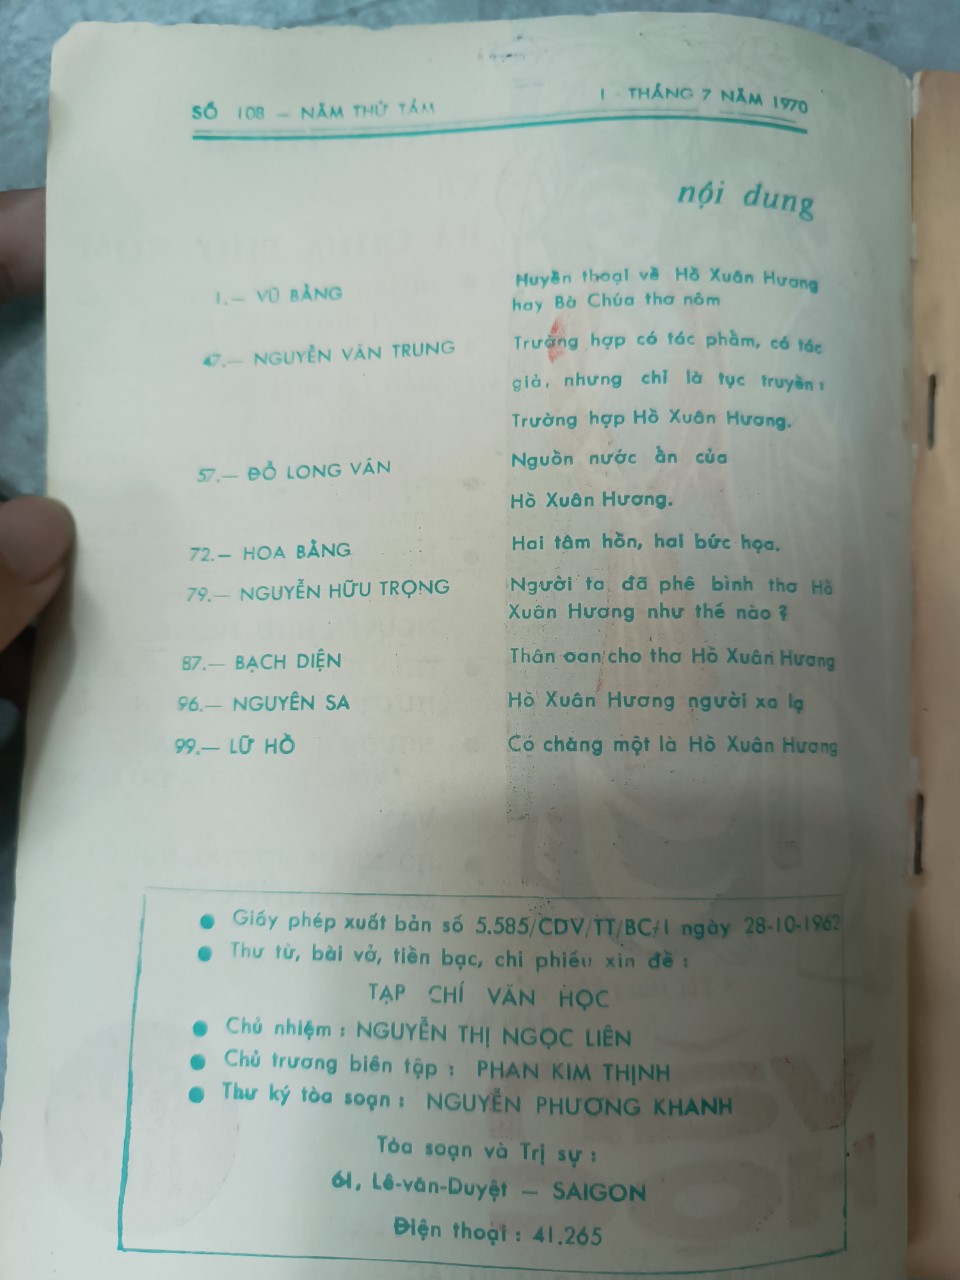 SỐ 108 — NĂM THỨ TÁM
1 - THÁNG 7 NĂM 1970
nội dung
1.— VŨ BẰNG Huyền thoại về Hồ Xuân Hương
hay Bà Chúa thơ nôm
47.— NGUYỄN VĂN TRUNG Trường hợp có tác phẩm, có tác
giả, nhưng chỉ là tục truyền :
Trường hợp Hồ Xuân Hương.
57.— ĐỖ LONG VÂN Nguồn nước ẩn của
Hồ Xuân Hương.
72.— HOA BẰNG Hai tâm hồn, hai bức họa.
79.— NGUYỄN HỮU TRỌNG Người ta đã phê bình thơ Hồ
Xuân Hương như thế nào ?
87.— BẠCH DIỆN Thân oan cho thơ Hồ Xuân Hương
96.— NGUYÊN SA Hồ Xuân Hương người xa lạ
99.— LỮ HỒ Có chăng một là Hồ Xuân Hương
● Giấy phép xuất bản số 5.585/CDV/TT/BC/1 ngày 28-10-1962
● Thư từ, bài vở, tiền bạc, chi phiếu xin đề :
TẠP CHÍ VĂN HỌC
● Chủ nhiệm : NGUYỄN THỊ NGỌC LIÊN
● Chủ trương biên tập : PHAN KIM THỊNH
● Thư ký tòa soạn : NGUYỄN PHƯƠNG KHANH
Tòa soạn và Trị sự :
61, Lê-văn-Duyệt — SAIGON
Điện thoại : 41.265